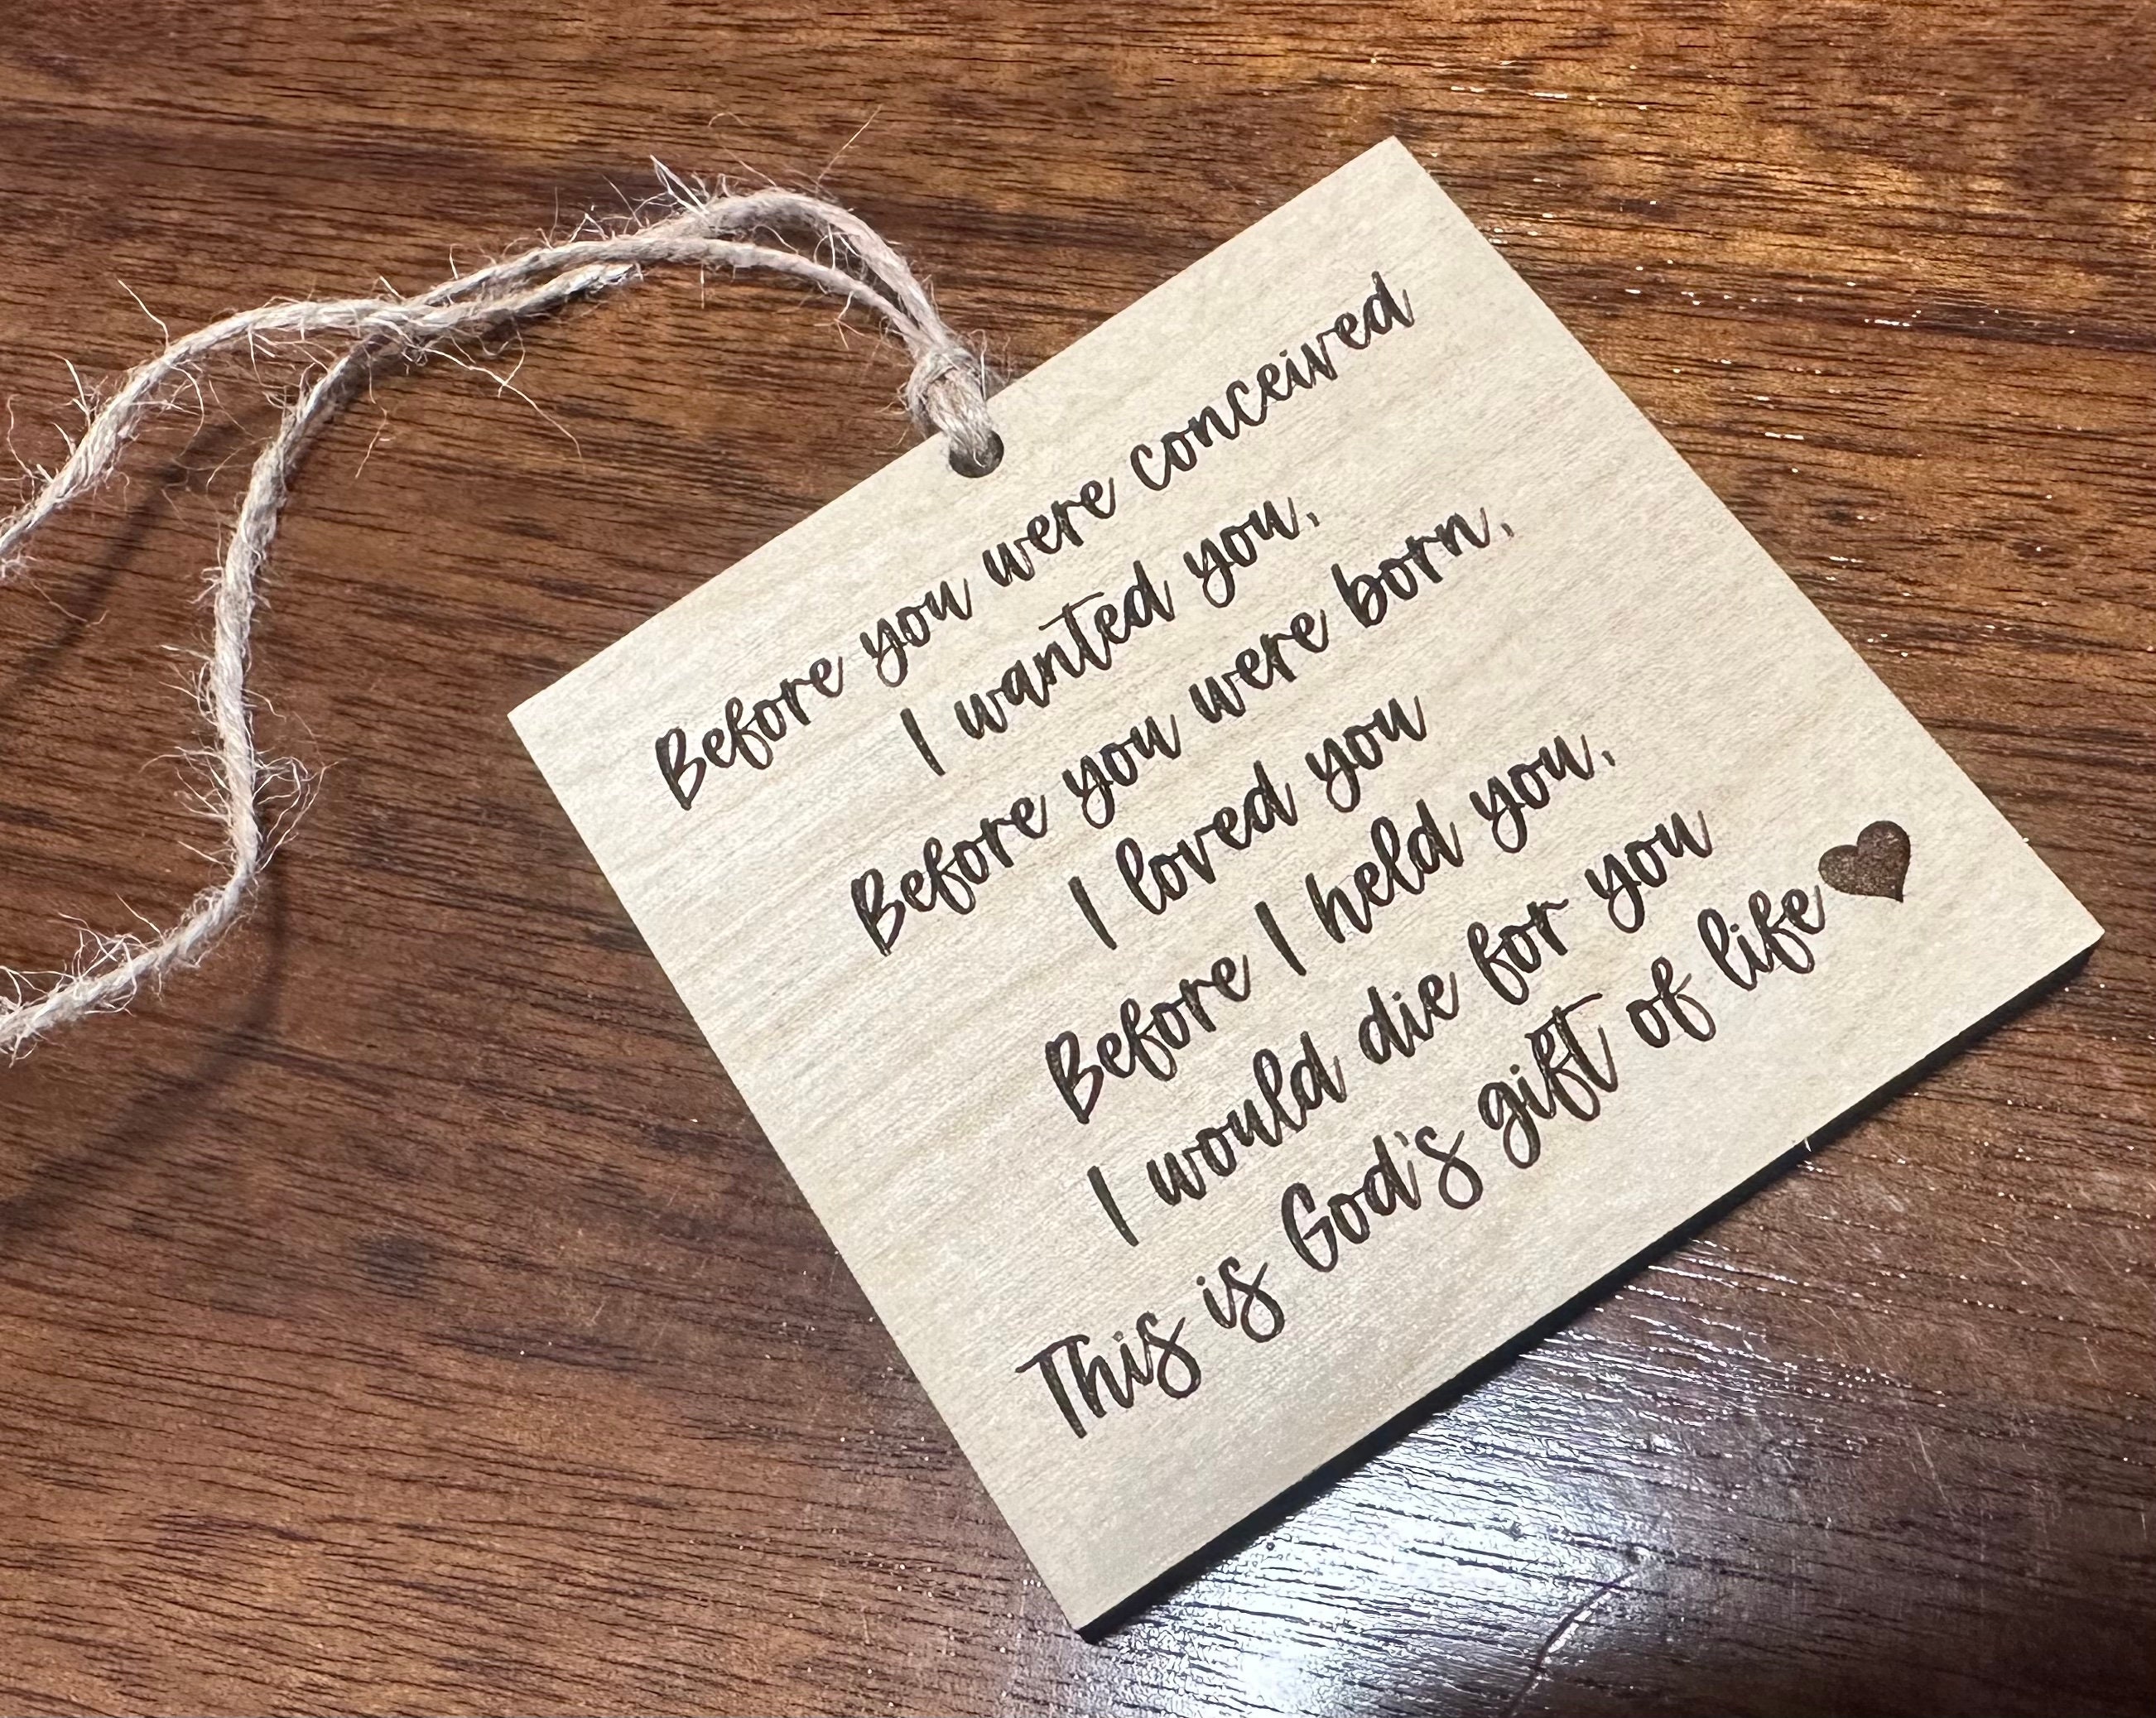 Before you were conceived
I wanted you,
Before you were born,
I loved you
Before I held you,
I would die for you
This is God's gift of life